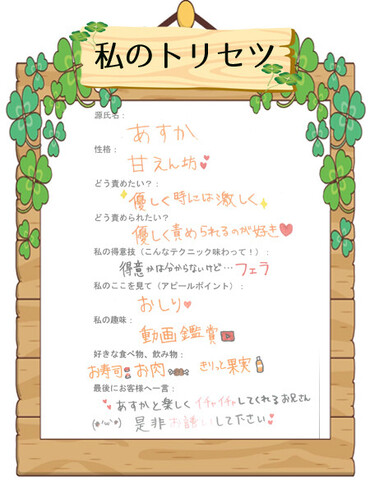 私のトリセツ
源氏名：
あすか
性格：
甘えん坊
どう責めたい？：
優しく時には激しく
どう責められたい？
優しく責められるのが好き
私の得意技（こんなテクニック味わって！）：
得意かは分からないけど…フェラ
私のここを見て（アピールポイント）：
おしり
私の趣味：
動画鑑賞
好きな食べ物、飲み物：
お寿司 お肉 きりっと果実
最後にお客様へ一言：
あすかと楽しくイチャイチャしてくれるお兄さん
(*'ω'*) 是非お誘いして下さい